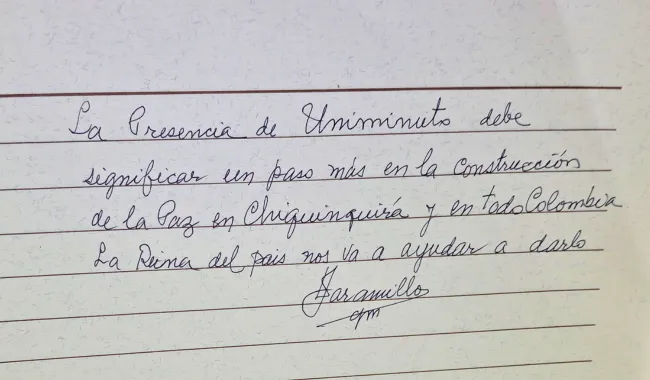 La Presencia de Uniminuto debe
significar un paso más en la construcción
de la Paz en Chiquinquirá y en todo Colombia
La Reina del pais nos va a ayudar a darlo
Jaramillo